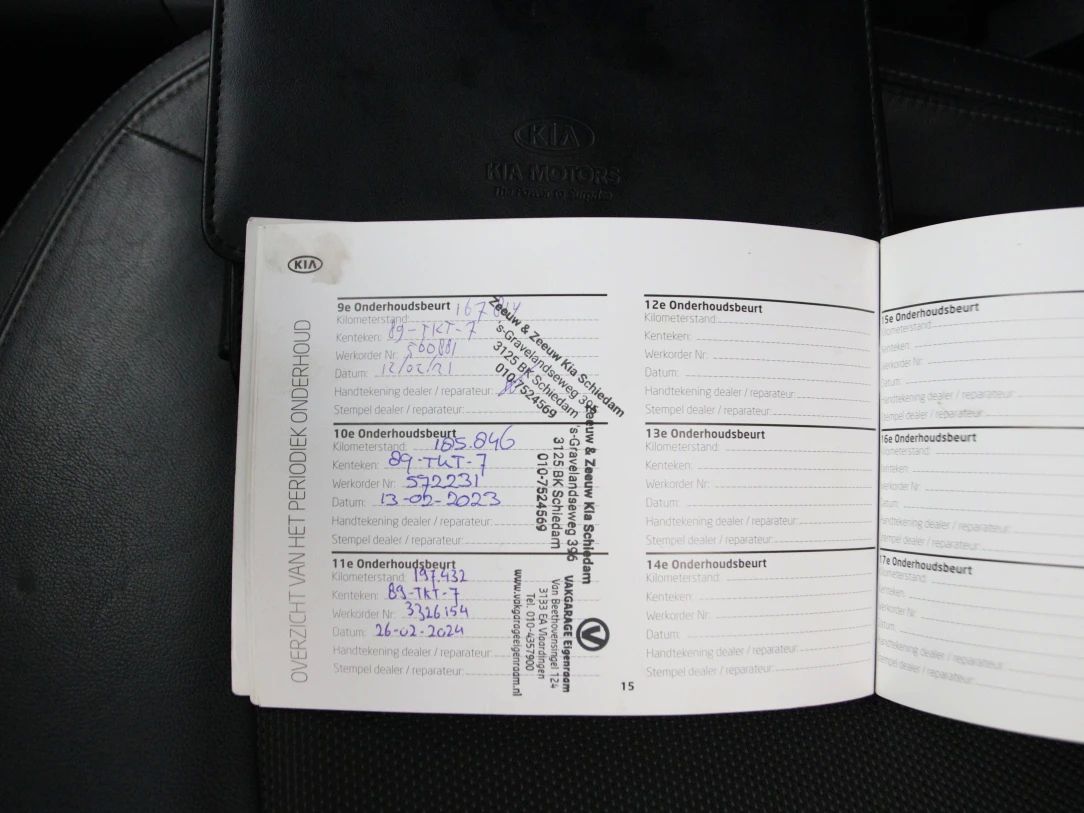 KIA
KIA MOTORS
The Power to Surprise
KIA
OVERZICHT VAN HET PERIODIEK ONDERHOUD
9e Onderhoudsbeurt
Kilometerstand: 167
Kenteken: 89-TKT-7
Werkorder Nr: 560881
Datum: 12/02/21
Handtekening dealer / reparateur:
Stempel dealer / reparateur:
Zeeuw & Zeeuw Kia Schiedam
's-Gravelandseweg 396
3125 BK Schiedam
010-7524569
10e Onderhoudsbeurt
Kilometerstand: 185.846
Kenteken: 89-TKT-7
Werkorder Nr: 572231
Datum: 13-02-2023
Handtekening dealer / reparateur:
Stempel dealer / reparateur:
Zeeuw & Zeeuw Kia Schiedam
's-Gravelandseweg 396
3125 BK Schiedam
010-7524569
11e Onderhoudsbeurt
Kilometerstand: 197.432
Kenteken: 89-TKT-7
Werkorder Nr: 3326154
Datum: 26-02-2024
Handtekening dealer / reparateur:
Stempel dealer / reparateur:
VAKGARAGE Eigenraam
Van Beethovensingel 124
3133 EA Vlaardingen
Tel. 010-4357900
www.vakgarageeigenraam.nl
15
12e Onderhoudsbeurt
Kilometerstand:
Kenteken:
Werkorder Nr:
Datum:
Handtekening dealer / reparateur:
Stempel dealer / reparateur:
13e Onderhoudsbeurt
Kilometerstand:
Kenteken:
Werkorder Nr:
Datum:
Handtekening dealer / reparateur:
Stempel dealer / reparateur:
14e Onderhoudsbeurt
Kilometerstand:
Kenteken:
Werkorder Nr:
Datum:
Handtekening dealer / reparateur:
Stempel dealer / reparateur:
15e Onderhoudsbeurt
Kilometerstand:
Kenteken:
Werkorder Nr:
Datum:
Handtekening dealer / reparateur:
Stempel dealer / reparateur:
16e Onderhoudsbeurt
Kilometerstand:
Kenteken:
Werkorder Nr:
Datum:
Handtekening dealer / reparateur:
Stempel dealer / reparateur:
17e Onderhoudsbeurt
Kilometerstand:
Kenteken:
Werkorder Nr:
Datum:
Handtekening dealer / reparateur:
Stempel dealer / reparateur: